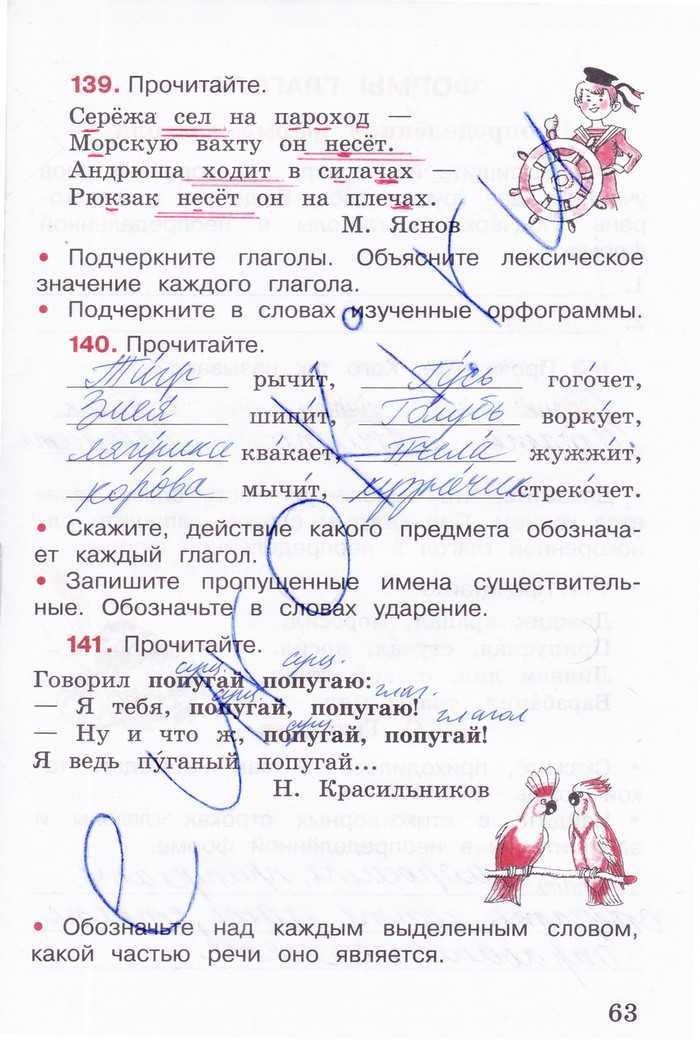 139. Прочитайте.
Серёжа сел на пароход —
Морскую вахту он несёт.
Андрюша ходит в силачах —
Рюкзак несёт он на плечах.
М. Яснов
• Подчеркните глаголы. Объясните лексическое
значение каждого глагола.
• Подчеркните в словах изученные орфограммы.
140. Прочитайте.
Тигр рычит, Гусь гогочет,
Змея шипит, Голубь воркует,
лягушка квакает, Пчела жужжит,
корова мычит, кузнечик стрекочет.
• Скажите, действие какого предмета обознача-
ет каждый глагол.
• Запишите пропущенные имена существитель-
ные. Обозначьте в словах ударение.
141. Прочитайте.
сущ. сущ.
Говорил попугай попугаю:
сущ. глаг.
— Я тебя, попугай, попугаю!
сущ. глагол
— Ну и что ж, попугай, попугай!
Я ведь пуганый попугай...
Н. Красильников
• Обозначьте над каждым выделенным словом,
какой частью речи оно является.
63